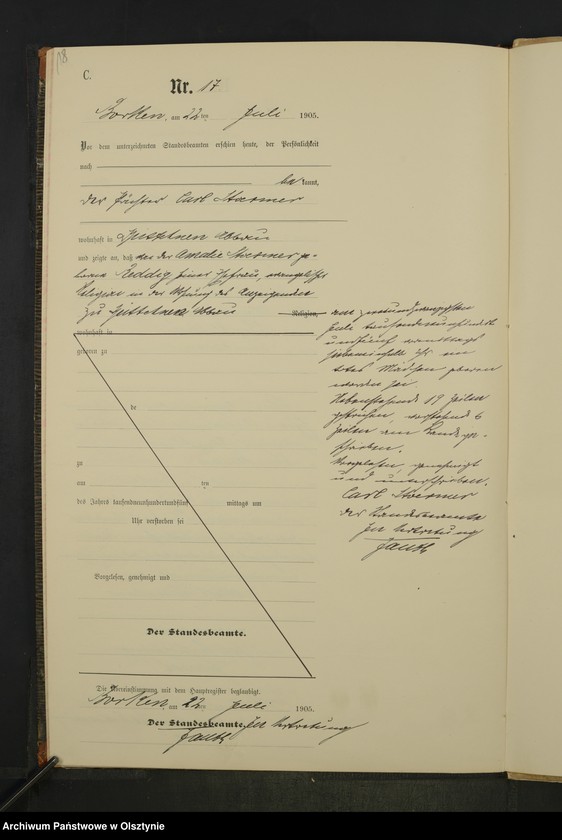 18
C.
Nr. 17
Borken, am 22ten Juli 1905.
Vor dem unterzeichneten Standesbeamten erschien heute, der Persönlichkeit
nach
bekannt,
der Pächter Carl Stoermer
wohnhaft in Abbau
und zeigte an, daß von der Amalie Stoermer ge-
borene Reddig seiner Ehefrau, evangelischer
Religion in der Wohnung des Anzeigenden
zu Abbau Religion,
wohnhaft in
geboren zu
de
zu
am ten
des Jahres tausendneunhundertfünf mittags um
Uhr verstorben sei
Vorgelesen, genehmigt und
Der Standesbeamte.
am zwanzigsten
Juli tausendneunhundert
und fünf vormittags
Uhr ein
totes Mädchen geboren
worden sei.
Nebenstehende 19 Zeilen
gestrichen, vorstehend 6
Zeilen am Rande ge-
schrieben.
Vorgelesen, genehmigt
und unterschrieben.
Carl Stoermer
Der Standesbeamte
In Vertretung
Die Übereinstimmung mit dem Hauptregister beglaubigt.
Borken am 22ten Juli 1905.
Der Standesbeamte. In Vertretung
Archiwum Państwowe w Olsztynie